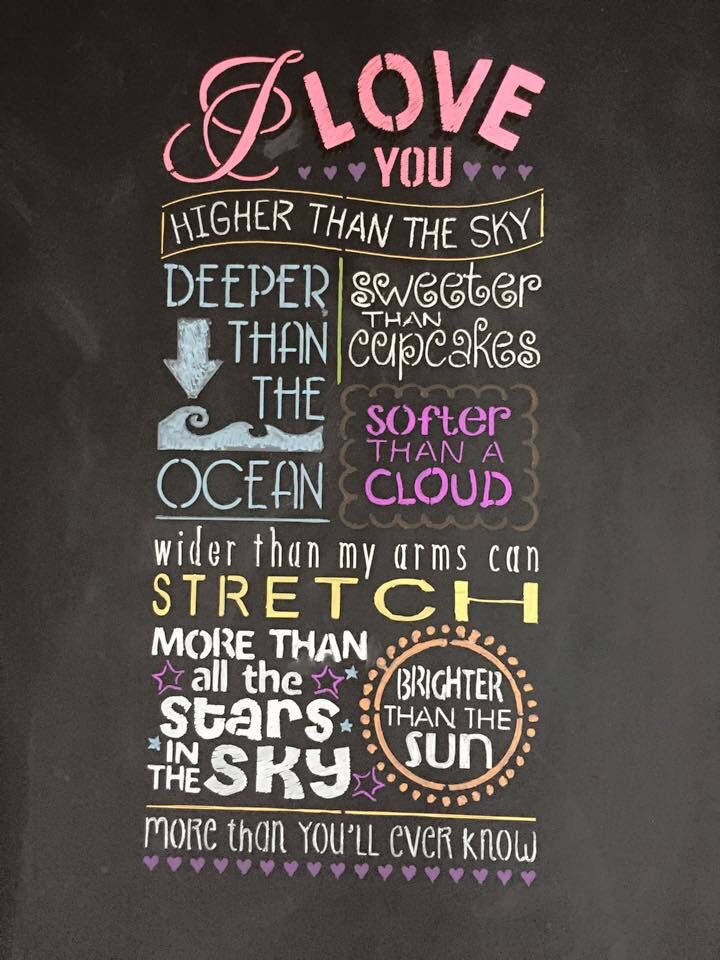 I LOVE
YOU
HIGHER THAN THE SKY
DEEPER
THAN
THE
OCEAN
sweeter
THAN
cupcakes
softer
THAN A
CLOUD
wider than my arms can
STRETCH
MORE THAN
all the
stars
IN
THE SKY
BRIGHTER
THAN THE
sun
MORE than YOU'LL EVER KNOW